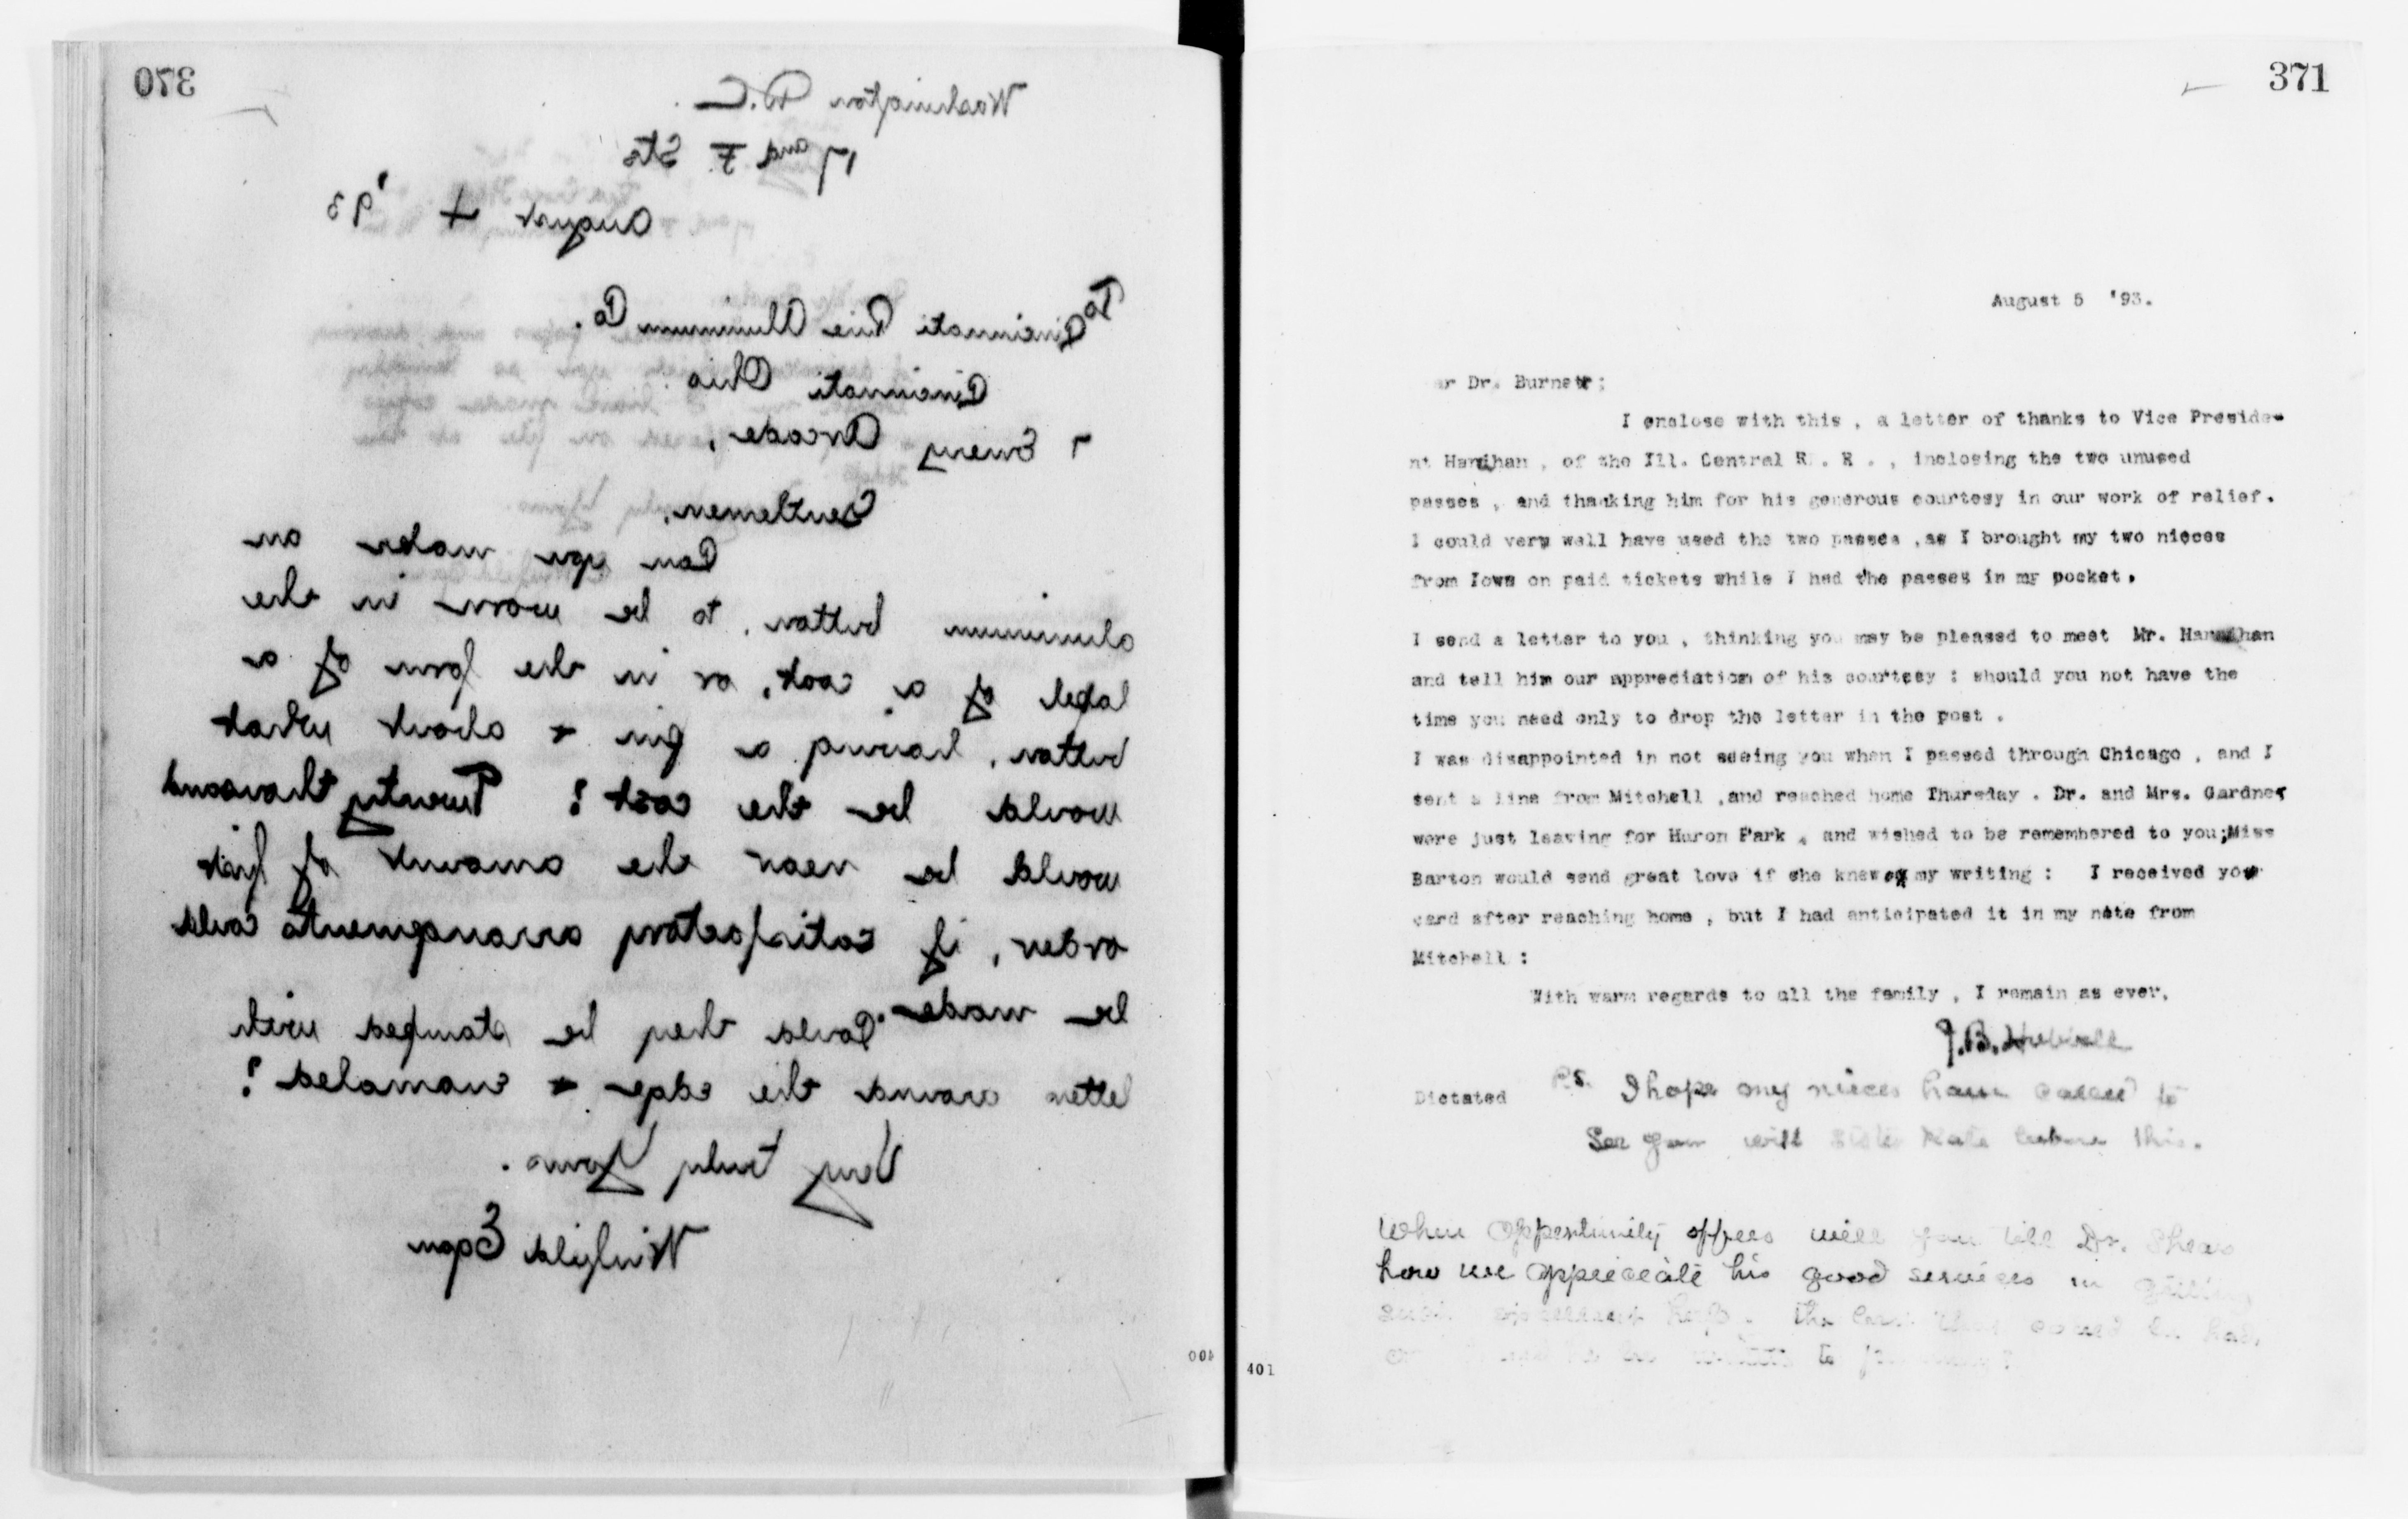 370
Washington D.C.
17 and F Sts
August 4 '93
To
Cincinnati Aluminum Co.
Cincinnati Ohio
Emery Arcade,
Gentlemen,
Can you make an
aluminum button, to be worn in the
lapel of a coat, or in the form of a
button, having a pin & about what
would be the cost? Twenty thousand
would be near the amount of first
order, if satisfactory arrangements could
be made. Could they be stamped with
letters around the edge & enameled?
Very Truly Yours.
Winfield Egan
400
371
August 5 '93.
ar Dr. Burnett;
I enclose with this , a letter of thanks to Vice Preside-
nt Harahan , of the Ill. Central R . R . , inclosing the two unused
passes , and thanking him for his generous courtesy in our work of relief.
I could very well have used the two passes ,as I brought my two nieces
from Iowa on paid tickets while I had the passes in my pocket.
I send a letter to you , thinking you may be pleased to meet Mr. Harahan
and tell him our appreciation of his courtesy : should you not have the
time you need only to drop the letter in the post .
I was disappointed in not seeing you when I passed through Chicago , and I
sent a line from Mitchell ,and reached home Thursday . Dr. and Mrs. Gardner
were just leaving for Huron Park , and wished to be remembered to you;Miss
Barton would send great love if she knew of my writing : I received your
card after reaching home , but I had anticipated it in my note from
Mitchell :
With warm regards to all the family , I remain as ever,
J.B. Hubbell
Dictated
P.S. I hope my nieces have called to
See you with Kate before this.
When opportunity offers will you tell Dr.
how we appreciate his good services in getting
the
to
401